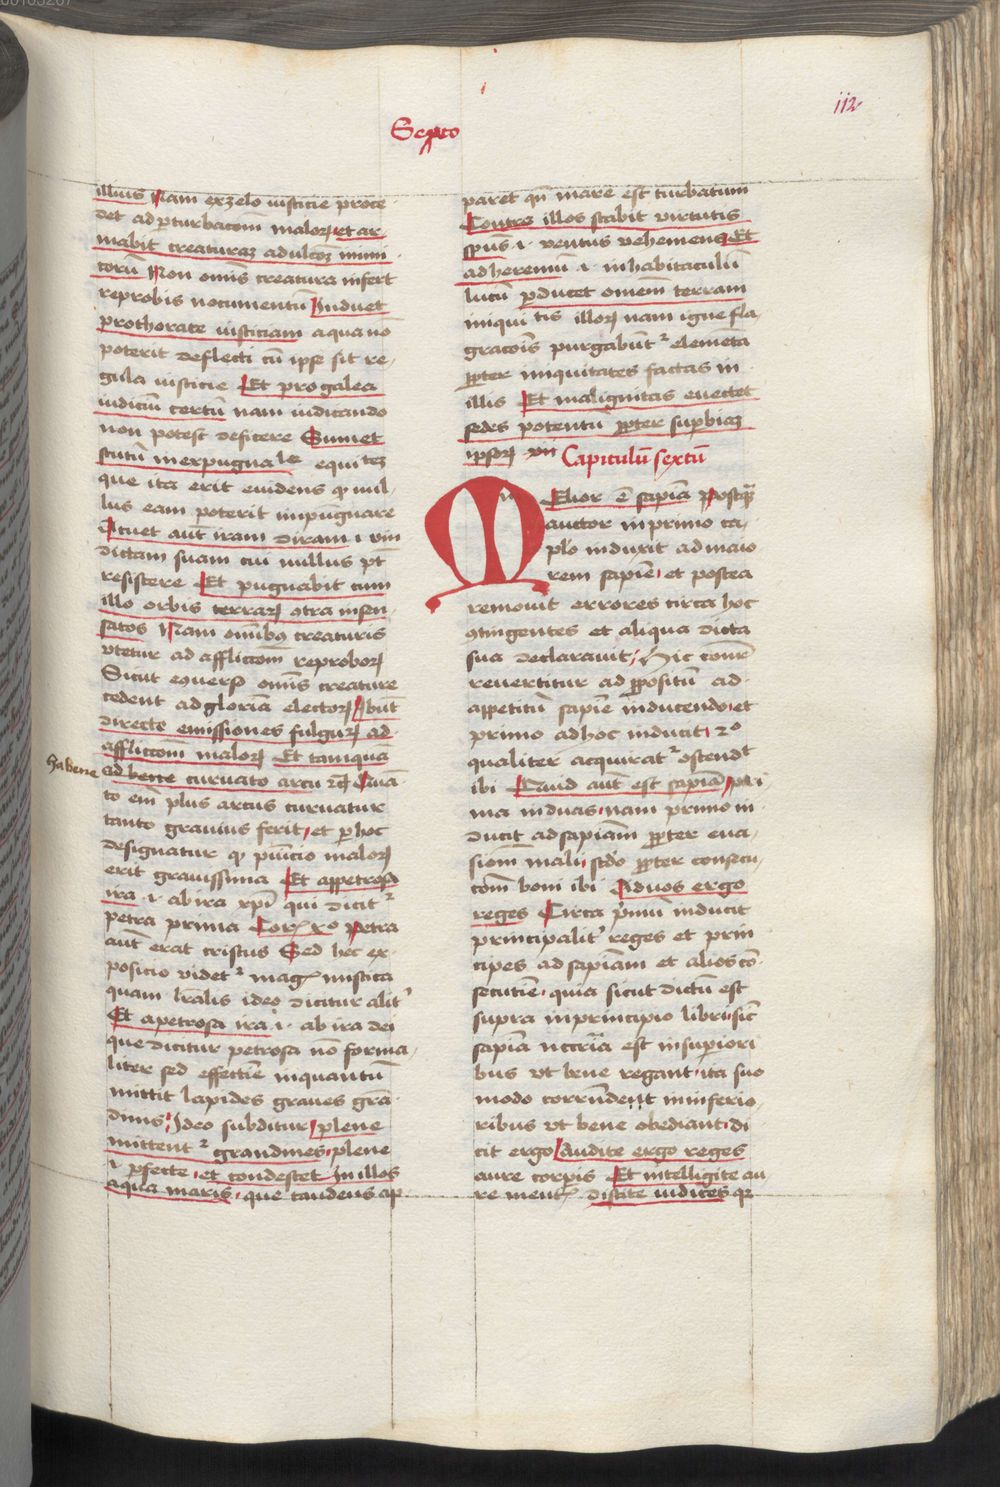 112
Sexto
illius Nam ex zelo iusticie proce
det ad ꝑturbacōm maloꝝ et ar
mabit creaturaꝫ ad ulcōꝫ inimi
corū Non omīs creatura infert
reprobis nocumentū Induet
pro thorate iusticiam a qua nō
poterit deflecti cū ipse sit re
gula iusticie Et pro galea
iudiciū certū nam iudicando
non potest deficere Sumet
scutū inexpugnaˡᵉ equitēꝫ
que ita erit euidens ꝙ nul
lus eam poterit impugnare
Acuet aūt iram diram .i. vin
dictam suam cui nullus pt̄
resistere Et pugnabit cum
illo orbis terraꝝ ꝯtra insen
satos Nam omībꝰ creaturis
vtetur ad afflictōm reproboꝝ
Sicut eꝯuerso omīs creature
cedent ad gloriā electoꝝ Ibūt
directe emissiones fulguꝝ ad
afflictōm maloꝝ Et tamquā
habene
ad bene curuato arcu Quā
to eīn plus arcus curuatur
tanto grauius ferit, et ꝑ hoc
designatur ꝙ pūicio maloꝝ
erit grauissima Et a petrosa
ira .i. ab ira xp̄i qui dicit²
petra prima Coꝝ xº Petra
aūt erat cristus Sed hec ex
posicio videt² magꝭ mistica
quam lr̄alis ideo dicitur alit'
Et a petrosa ira .i. ab ira dei
que dicitur petrosa nō forma
liter sed effectiē inquantū
mittit lapides graues grā
dinis, Ideo subditur, plene
mittent² grandines, plene
.i. ꝑfecte, et condescet In illos
aqua maris, que tandens ap
paret qn̄ mare est turbatum
Contra illos stabit virtutis
sp̄us .i. ventus vehemens Et
ad heremū .i. inhabitaculū
lucū ꝑducet omem terram
iniquitis illoꝝ nam igne fla
gracōis purgabūt² elemēta
ꝓpter iniquitates factas in
illis Et malignitas euertet
sedes potentū ꝓpter suꝑbiaꝫ
ipsoꝝ Capitulū sextū
Melior ē sapīa Postqᷓ
auctor in primo ca
plo induxit ad maio
rem sapiē, et postea
remouit errores circa hoc
ꝯtingentes et aliqua dicta
sua declarauit, Hic
reuertitur ad ꝓpositū ad
appetitū sapiē inducendo, et
primo ad hoc inducit, 2º
qualiter acquirat² ostendᵗ
ibi Quid aūt est sapīa, pri
ma in duas, nam primo in
ducit ad sapīam ꝓpter eua
siom̄ mali, scd̄o ꝓpter consecu
cōm boni ibi Ad vos ergo
reges Circa p̄mū inducit
principalit' reges et prin
cipes ad sapīam et alios cō
secutiē, quia sicut dictū est
supra in principio libri, sic
sapīa nccr̄ia est insuꝑiori
bus vt bene regant, ita suo
modo corrn̄dent in inferio
ribus vt bene obediant, di
cit ergo Audite ergo reges
aure corpīs Et intelligite au
re mentꝭ discite iudices qꝛ